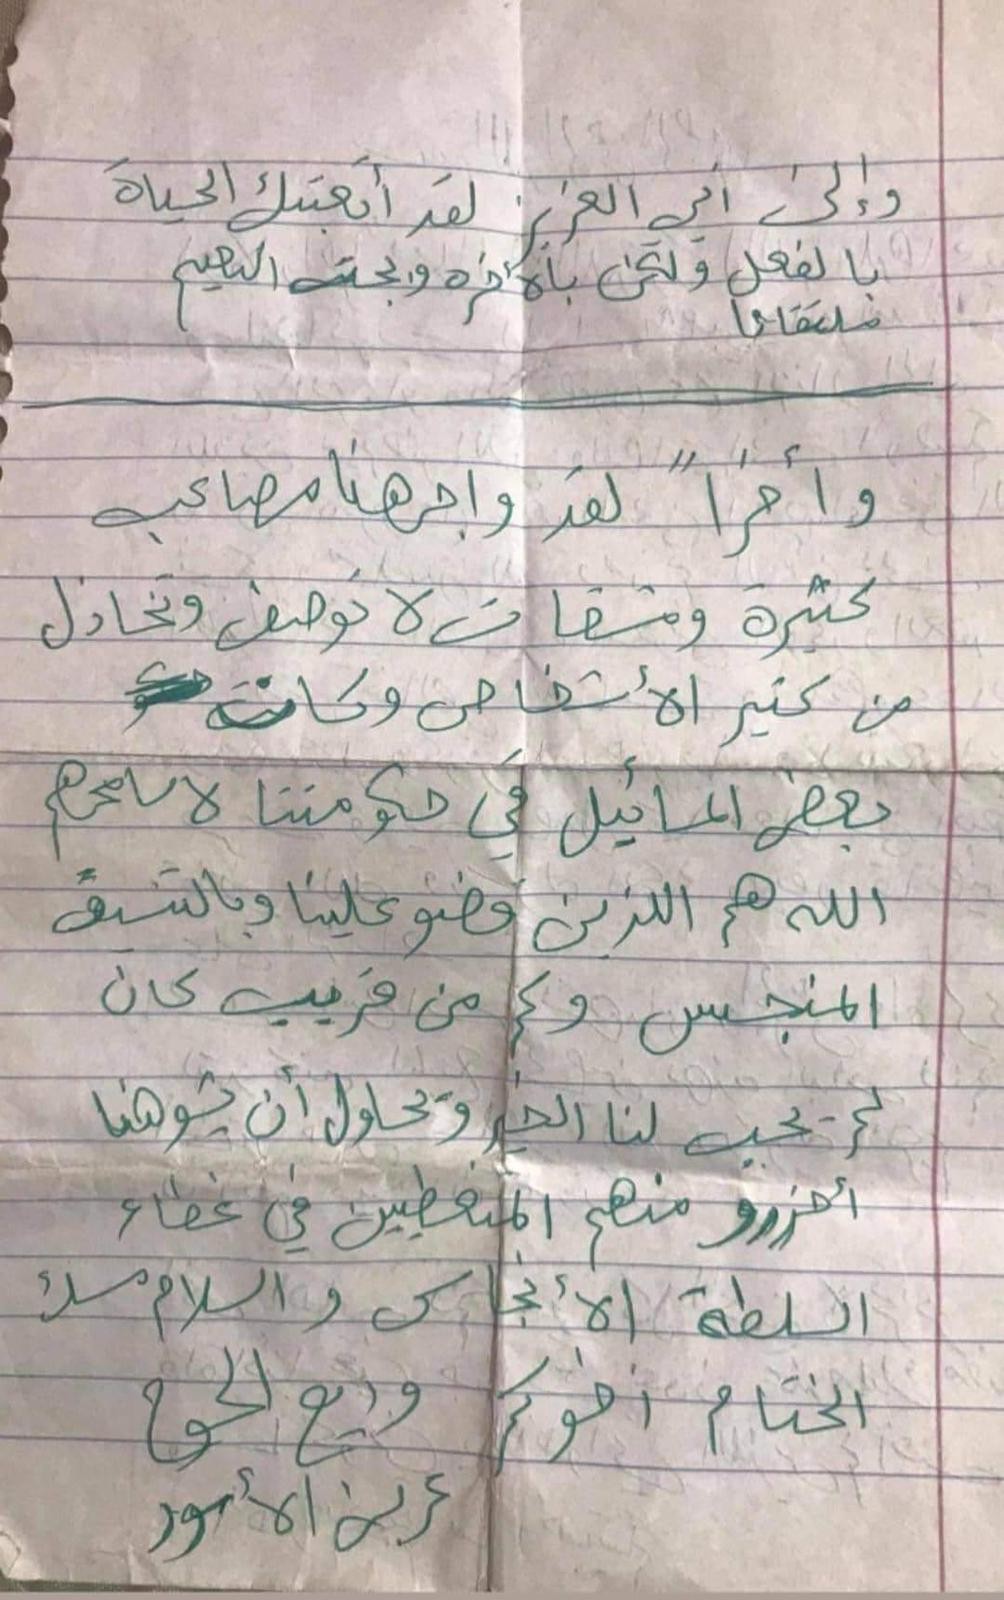 وإلى أبي العزيز لقد أتعبتك الحياة
بالفعل ولكن بالأخره وبجنت النعيم
ملتقانا
وأخرًا لقد واجهنا مصاعب
كثيرة ومشقات لا توصف وتخاذل
من كثير الأشخاص وكانت
بعض المسائيل في حكومتنا لا سامحهم
الله هم اللذين وضو علينا وبالتنسيق
المنجس وكم من قريب كان
لم يحب لنا الخير وحاول أن يشوهنا
أحزرو منهم المتغطيين في غطاء
السلطة الأنجاس والسلام مسك
الختام أخوكم وديع الحوح
عرين الأسود